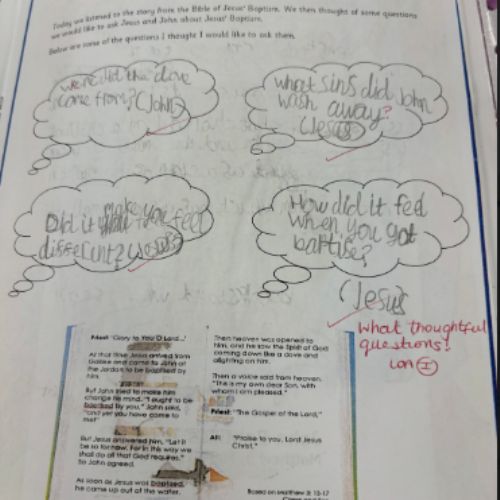 Today we listened to the story from the Bible of Jesus' Baptism. We then thought of some questions
we would like to ask Jesus and John about Jesus' Baptism.
Below are some of the questions I thought I would like to ask them.
were did the dove
come from? (John)
what sins did John
wash away?
(Jesus)
Did it make you feel
different? (Jesus)
How did it feel
when you got
baptise?
(Jesus)
What thoughtful
questions!
Priest: 'Glory to You O Lord...'
At that time Jesus arrived from
Galilee and came to John at
the Jordan to be baptised by
him.
But John tried to make him
change his mind. "I ought to be
baptised by you," John said,
"and yet you have come to
me!"
But Jesus answered him, "Let it
be so for now. For in this way we
shall do all that God requires."
So John agreed.
As soon as Jesus was baptised,
he came up out of the water.
Then heaven was opened to
him, and he saw the Spirit of God
coming down like a dove and
alighting on him.
Then a voice said from heaven,
"This is my own dear Son, with
whom I am pleased."
Priest: "The Gospel of the Lord,"
All: "Praise to you, Lord Jesus
Christ."
Based on Matthew 3: 13-17